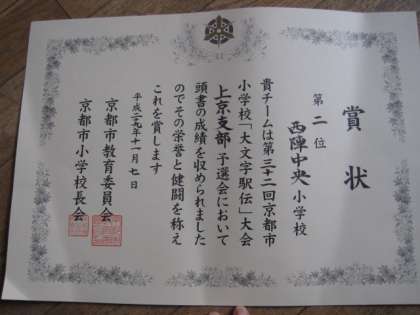 賞状
第二位
西陣中央小学校
貴チームは第三十二回京都市
小学校「大文字駅伝」大会
上京支部予選会において
頭書の成績を収められました
のでその栄誉と健闘を称え
これを賞します
平成二九年十一月七日
京都市教育委員会
京都市小学校長会